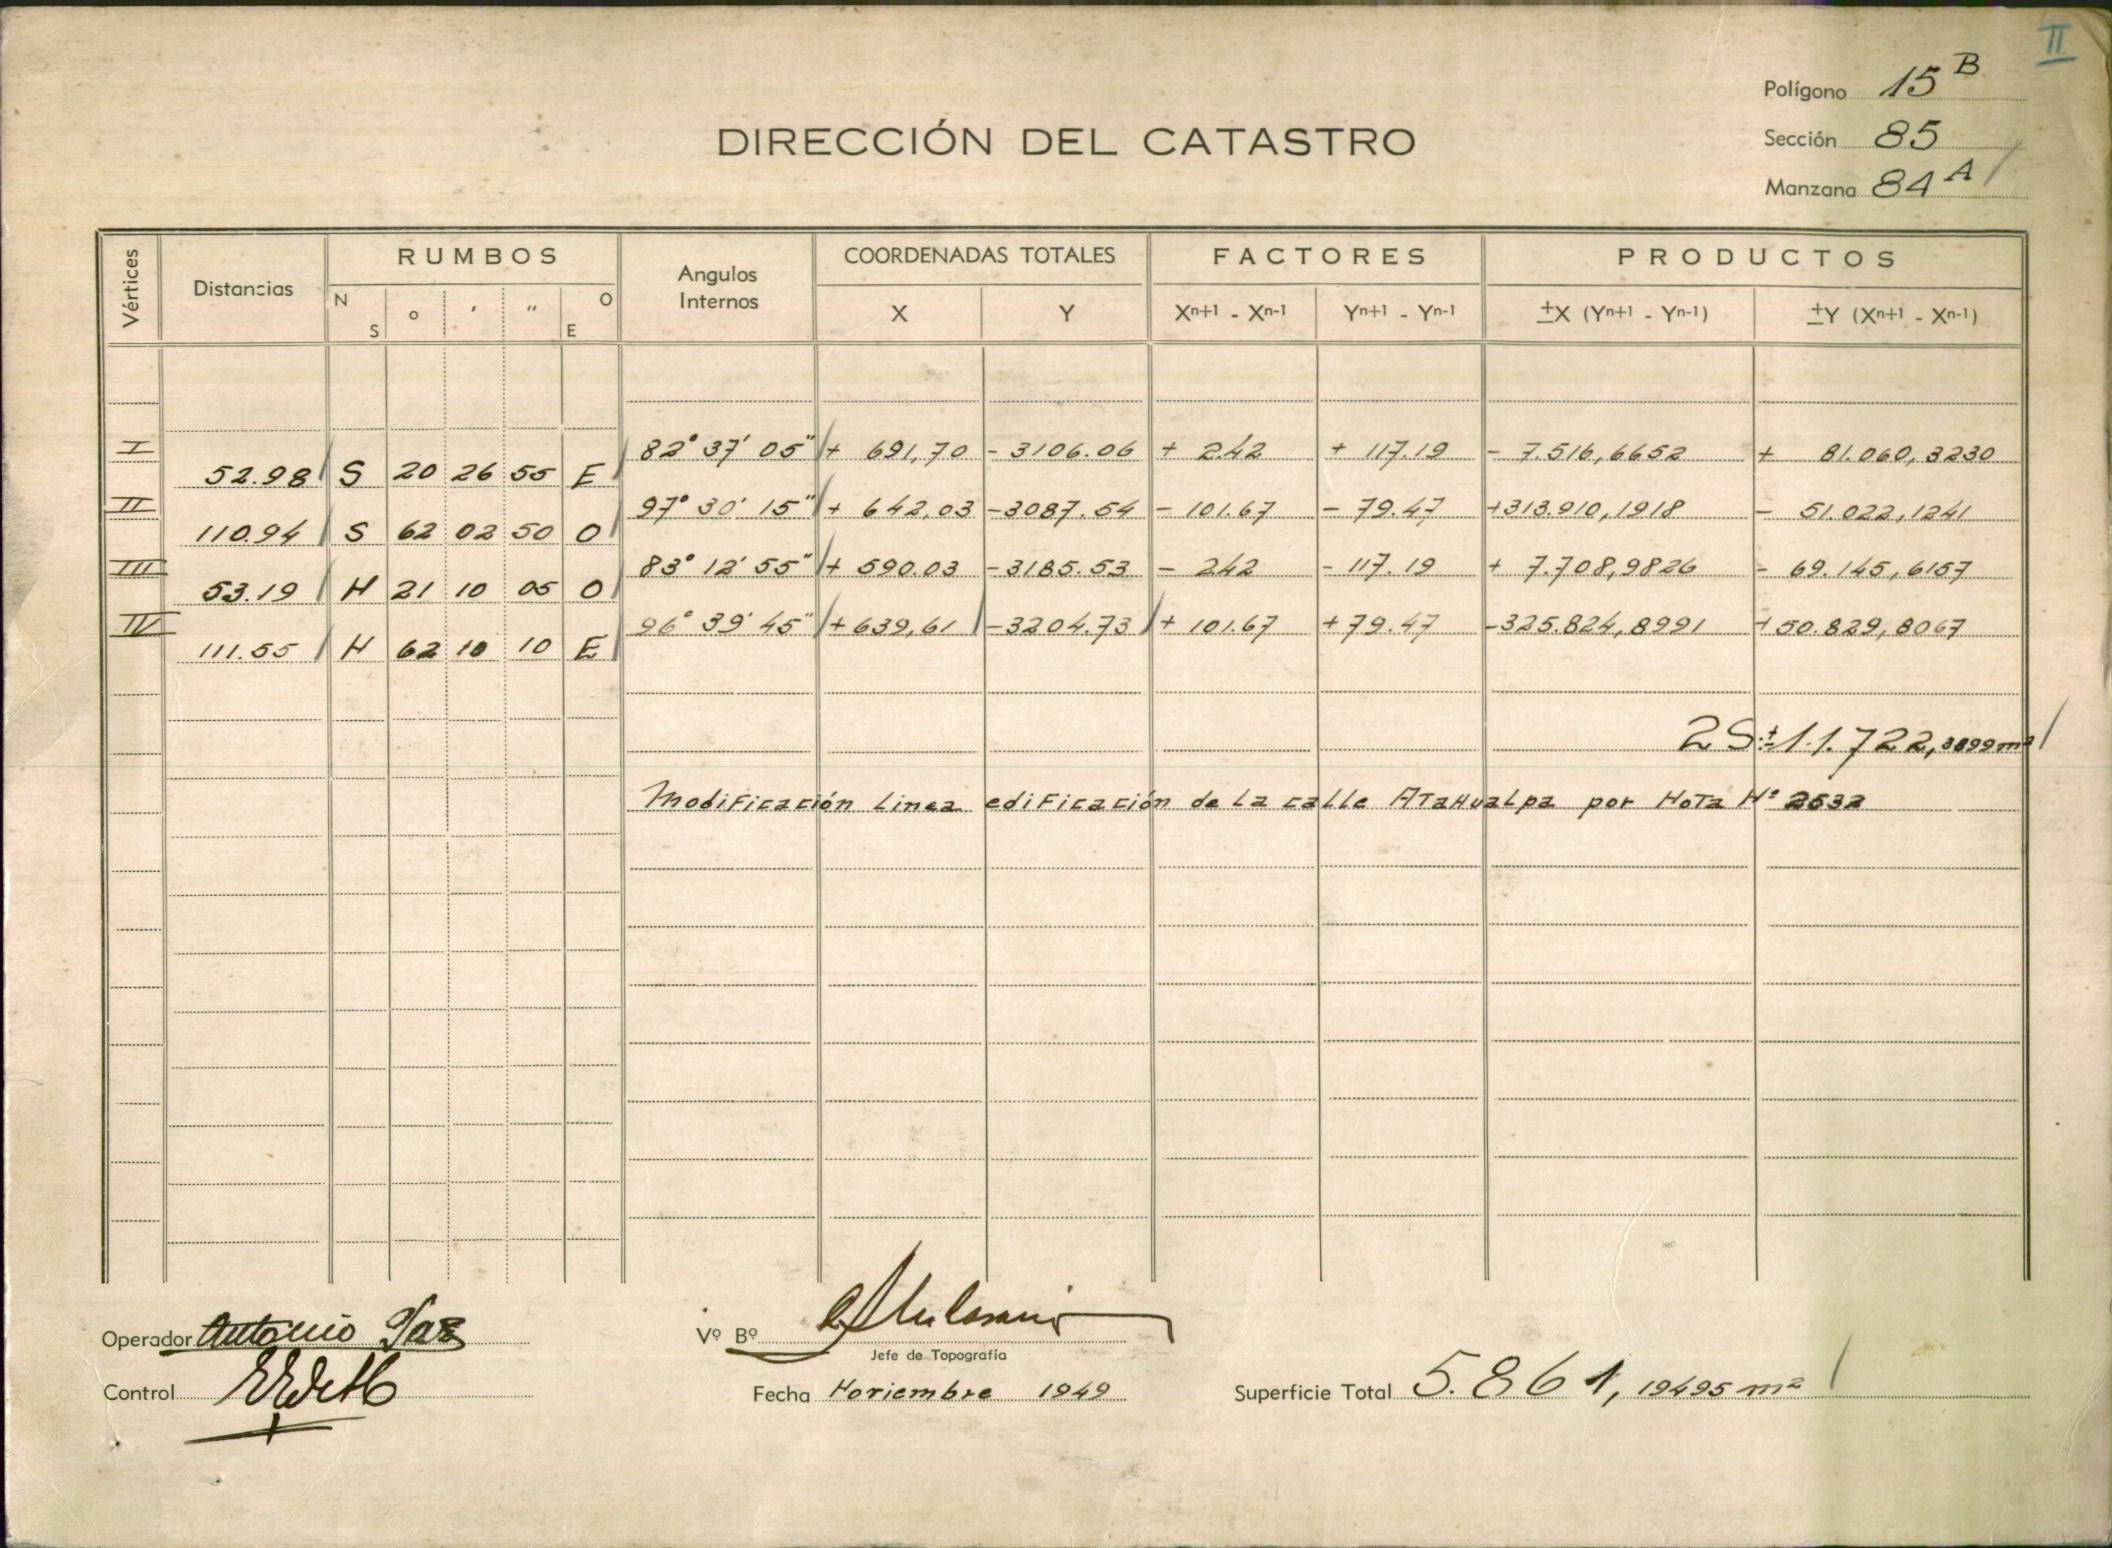 II
Polígono 15 B
DIRECCIÓN DEL CATASTRO
Sección 85
Manzana 84 A
Vértices Distancias RUMBOS Angulos Internos COORDENADAS TOTALES FACTORES PRODUCTOS
N S o ' " O E X Y Xn+1 - Xn-1 Yn+1 - Yn-1 ±X (Yn+1 - Yn-1) ±Y (Xn+1 - Xn-1)
I 82° 37' 05" + 691,70 - 3106.06 + 2.42 + 117.19 - 7.516,6652 + 81.060,3230
52.98 S 20 26 55 E
II 97° 30' 15" + 642,03 - 3087.54 - 101.67 - 79.47 + 313.910,1918 - 51.022,1241
110.94 S 62 02 50 O
III 83° 12' 55" + 590.03 - 3185.53 - 242 - 117.19 + 7.708,9826 - 69.145,6157
53.19 N 21 10 05 O
IV 96° 39' 45" + 639,61 - 3204.73 + 101.67 + 79.47 - 325.824,8991 + 50.829,8067
111.55 N 62 10 10 E
2S ± 11.722,3899 m²
Modificación Linea edificación de la calle Atahualpa por Nota Nº 2532
Operador Antonio
Vº Bº
Jefe de Topografía
Control
Fecha Noviembre 1949
Superficie Total 5.861,19495 m²